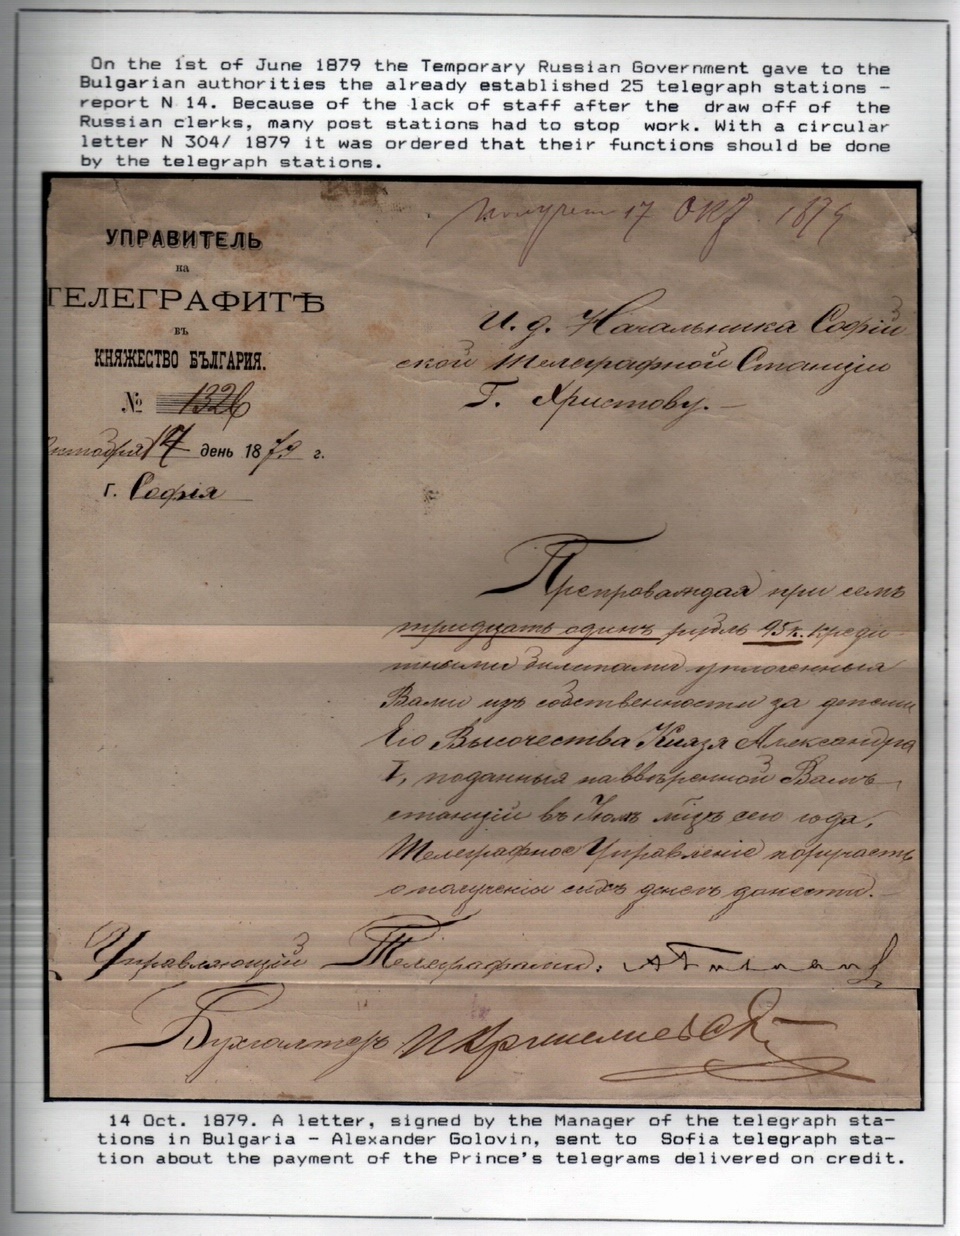 On the 1st of June 1879 the Temporary Russian Government gave to the
Bulgarian authorities the already established 25 telegraph stations -
report N 14. Because of the lack of staff after the draw off of the
Russian clerks, many post stations had to stop work. With a circular
letter N 304/ 1879 it was ordered that their functions should be done
by the telegraph stations.
17 Окт. 1879
УПРАВИТЕЛЬ
на
ТЕЛЕГРАФИТѢ
въ
КНЯЖЕСТВО БЪЛГАРИЯ.
№ 1326
Октобрия 14 день 1879 г.
г. Софія
И. д. Начальника Софій
ской Телеграфной Станціи
Г. Христову.
Препровождая при семъ
тридцать одинъ рубль 95 к. креди-
тными билетами уплоченныя
Вами изъ собственности за депеши
Его Высочества Князя Александра
I, поданныя на ввѣренной Вамъ
станціи въ Іюлѣ мѣсяцѣ сего года,
Телеграфное Управленіе поручаетъ
о полученіи сихъ денегъ донести.
Управляющій Телеграфами:
Бухгалтеръ
14 Oct. 1879. A letter, signed by the Manager of the telegraph sta-
tions in Bulgaria - Alexander Golovin, sent to Sofia telegraph sta-
tion about the payment of the Prince's telegrams delivered on credit.